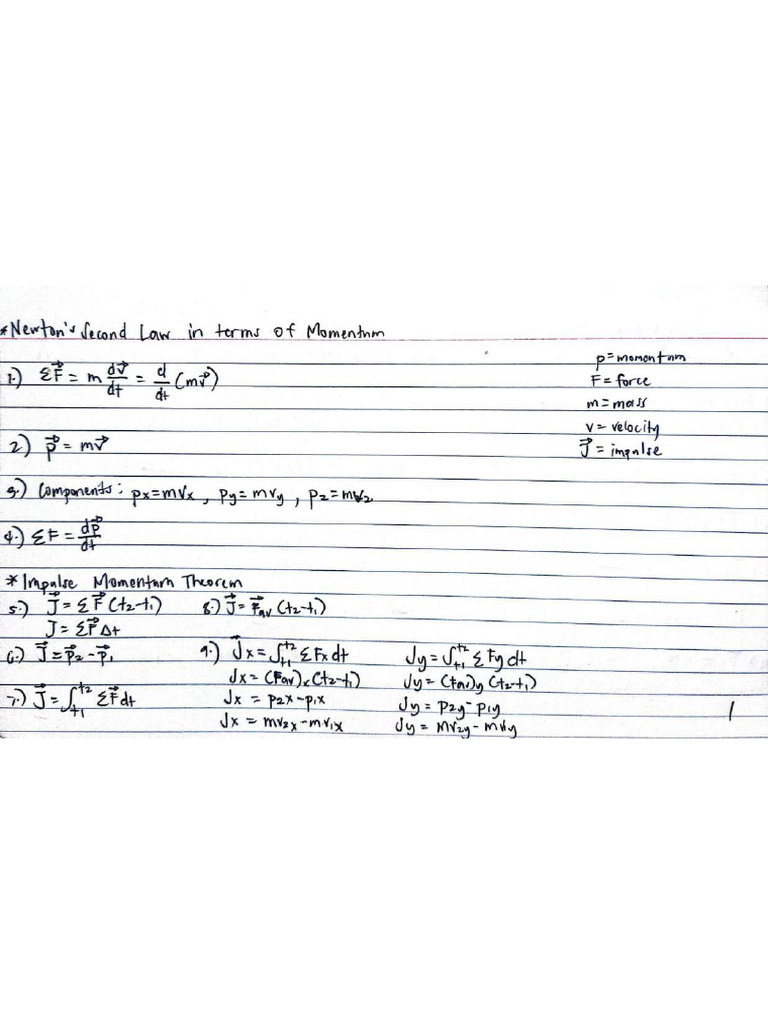 *Newton's Second Law in terms of Momentum
p = momentum
F = force
m = mass
v = velocity
J⃗ = impulse
1.) ΣF⃗ = m dv⃗/dt = d/dt (mv⃗)
2.) p⃗ = mv⃗
3.) Components: px = mvx, py = mvy, pz = mvz
4.) ΣF = dp⃗/dt
*Impulse Momentum Theorem
5.) J⃗ = ΣF⃗ (t2-t1)
J = ΣF⃗ Δt
6.) J⃗ = p⃗2 - p⃗1
7.) J⃗ = ∫t1^t2 ΣF⃗ dt
8.) J⃗ = F⃗av (t2-t1)
9.) J⃗x = ∫t1^t2 ΣFx dt
Jx = (Fav)x (t2-t1)
Jx = p2x - p1x
Jx = mv2x - mv1x
Jy = ∫t1^t2 ΣFy dt
Jy = (Fav)y (t2-t1)
Jy = p2y - p1y
Jy = mv2y - mv1y
1